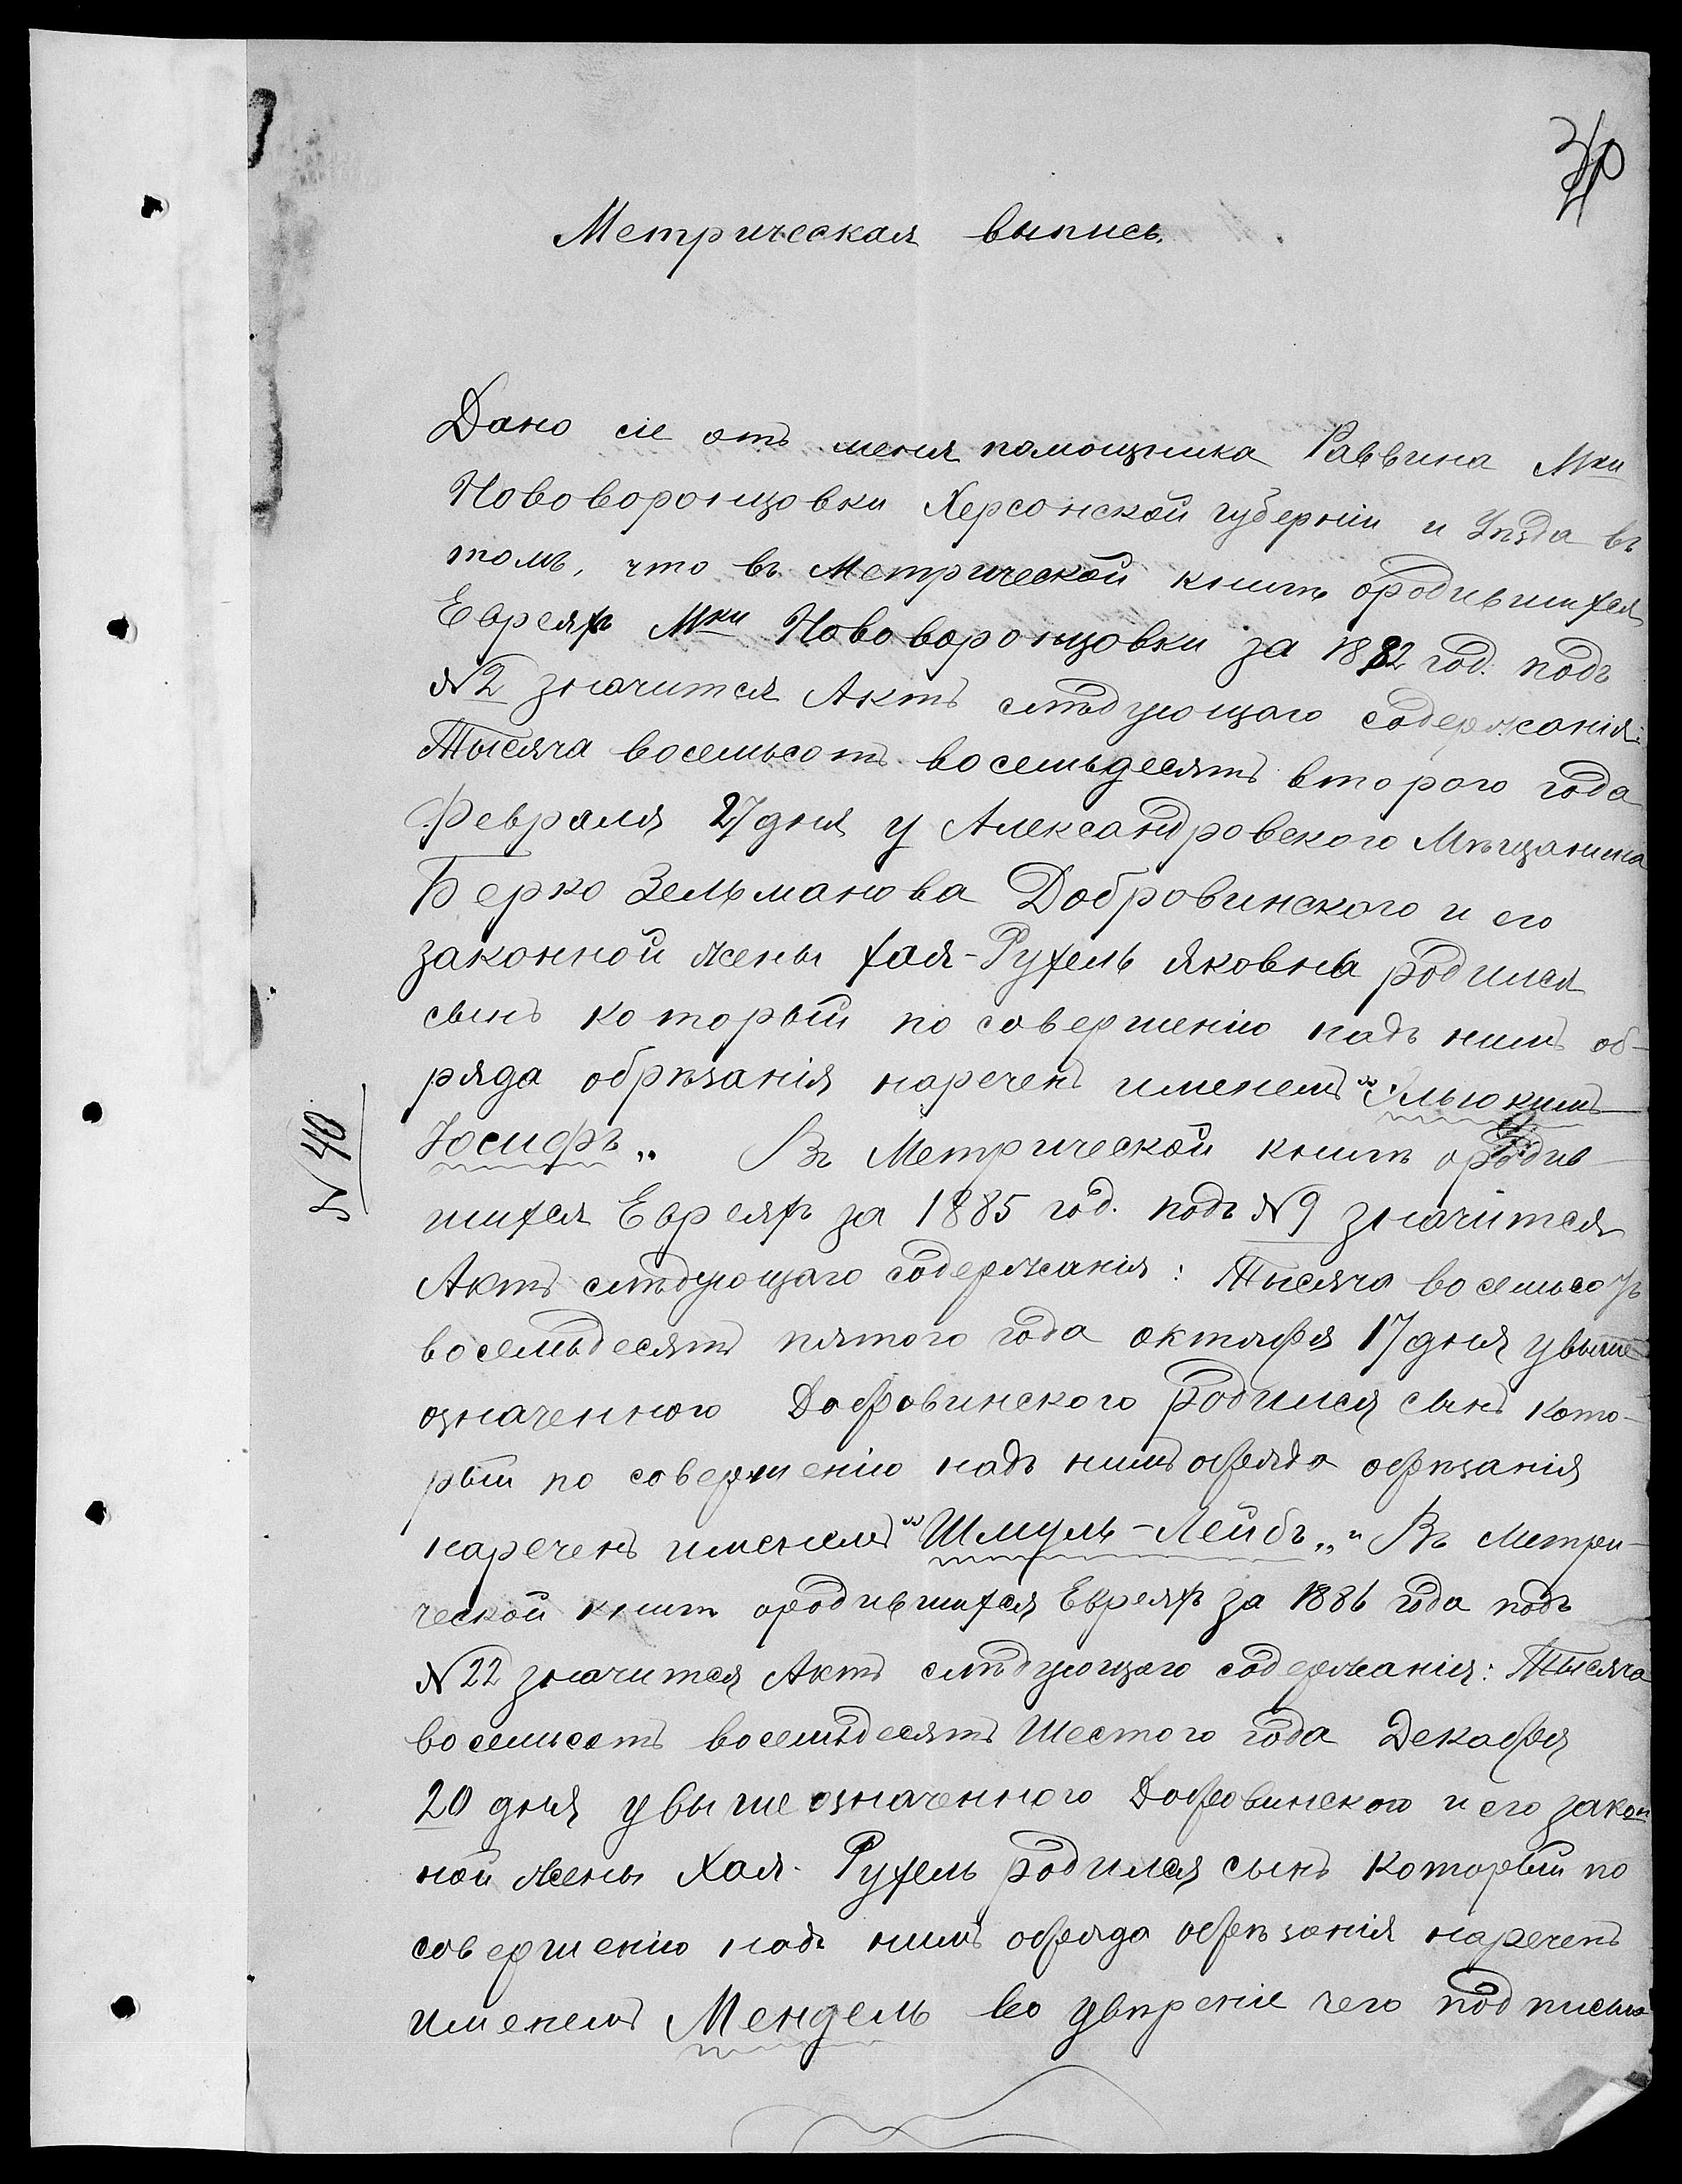 Метрическая выпись.
Дано сіе отъ меня помощника Раввина Мки
Нововоронцовки Херсонской губерніи и Уѣзда въ
томъ, что въ Метрической книгѣ ородившихся
Евреяхъ Мки Нововоронцовки за 1882 год. подъ
№2 значится Актъ слѣдующаго содержанія:
Тысяча восемьсотъ восемьдесятъ второго года
Февраля 27 дня у Александровского Мѣщанина
Берко Зельманова Добровинского и его
законной жены Хая-Рухель Яковна родился
сынъ который по совершенію надъ нимъ об-
ряда обрѣзанія нареченъ именемъ "Эльюкимъ
Юсифъ„ Въ Метрической книгѣ ородив-
шихся Евреяхъ за 1885 год. подъ №9 значится
№ 40
Актъ слѣдующаго содержанія: Тысяча восемьсотъ
восемьдесятъ пятого года октября 17 дня увыше
означенного Добровинского родился сынъ кото-
рый по совершенію надъ нимъ обряда обрѣзанія
нареченъ именемъ "Шмуль-Лейбъ„ Въ Метри-
ческой книгѣ ородившихся Евреяхъ за 1886 года подъ
№22 значится Актъ слѣдующаго содержанія: Тысяча
восемьсотъ восемьдесятъ Шестого года Декабря
20 дня увышеозначенного Добровинского и его закон
ной жены Хая-Рухель родился сынъ который по
совершенію надъ нимъ обряда обрѣзанія нареченъ
именемъ Мендель во увѣреніе чего подписью